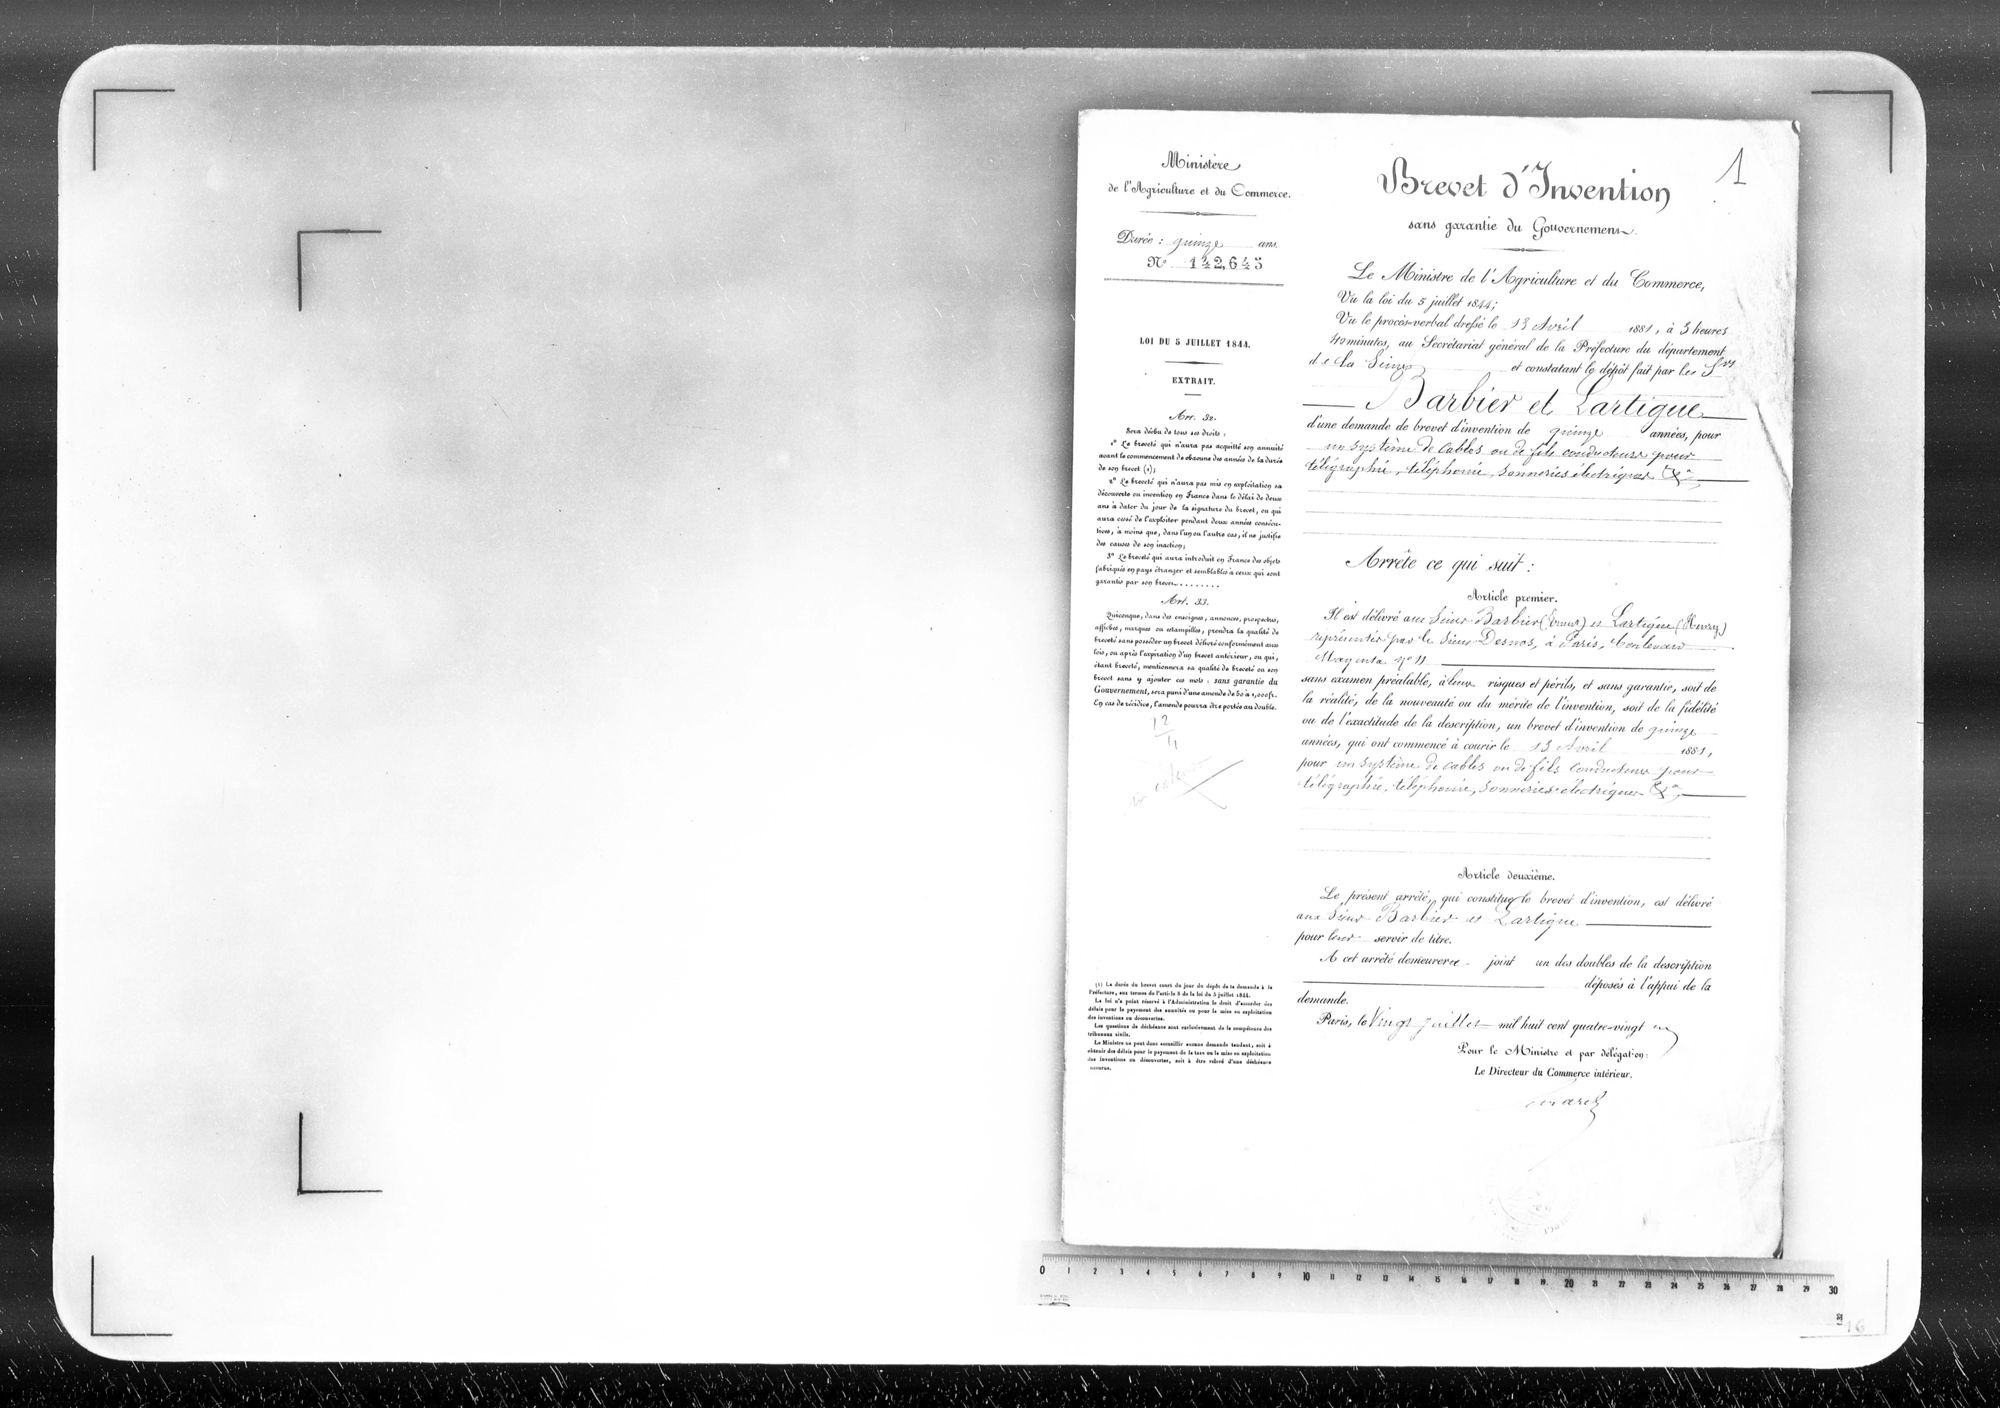 Ministère
de l'Agriculture et du Commerce.
Durée : quinze ans.
N° 142,645
LOI DU 5 JUILLET 1844.
EXTRAIT.
Art. 32.
Sera déchu de tous ses droits :
1° Le breveté qui n'aura pas acquitté son annuité
avant le commencement de chacune des années de la durée
de son brevet (1);
2° Le breveté qui n'aura pas mis en exploitation sa
découverte ou invention en France dans le délai de deux
ans à dater du jour de la signature du brevet, ou qui
aura cessé de l'exploiter pendant deux années consécu-
tives, à moins que, dans l'un ou l'autre cas, il ne justifie
des causes de son inaction;
3° Le breveté qui aura introduit en France des objets
fabriqués en pays étranger et semblables à ceux qui sont
garantis par son brevet........
Art. 33.
Quiconque, dans des enseignes, annonces, prospectus,
affiches, marques ou estampilles, prendra la qualité de
breveté sans posséder un brevet délivré conformément aux
lois, ou après l'expiration d'un brevet antérieur, ou qui,
étant breveté, mentionnera sa qualité de breveté ou son
brevet sans y ajouter ces mots : sans garantie du
Gouvernement, sera puni d'une amende de 50 à 1,000 fr.
En cas de récidive, l'amende pourra être portée au double.
12
4
in extenso
(1) La durée du brevet court du jour du dépôt de la demande à la
Préfecture, aux termes de l'article 8 de la loi du 5 juillet 1844.
La loi n'a point réservé à l'Administration le droit d'accorder des
délais pour le payement des annuités ou pour la mise en exploitation
des inventions ou découvertes.
Les questions de déchéance sont exclusivement de la compétence des
tribunaux civils.
Le Ministre ne peut donc accueillir aucune demande tendant, soit à
obtenir des délais pour le payement de la taxe ou la mise en exploitation
des inventions ou découvertes, soit à être relevé d'une déchéance
encourue.
1
Brevet d'Invention
sans garantie du Gouvernement.
Le Ministre de l'Agriculture et du Commerce,
Vu la loi du 5 juillet 1844;
Vu le procès-verbal dressé le 13 Avril 1881, à 3 heures
40 minutes, au Secrétariat général de la Préfecture du département
de la Seine et constatant le dépôt fait par les Srs
Barbier et Lartigue
d'une demande de brevet d'invention de quinze années, pour
un système de cables ou de fils conducteurs pour
télégraphie, téléphonie, sonneries électriques &a
Arrête ce qui suit :
Article premier.
Il est délivré aux Sieurs Barbier (Ernest) et Lartigue (Henry)
représentés par le Sieur Desnos, à Paris, boulevard
Magenta n° 11
sans examen préalable, à leurs risques et périls, et sans garantie, soit de
la réalité, de la nouveauté ou du mérite de l'invention, soit de la fidélité
ou de l'exactitude de la description, un brevet d'invention de quinze
années, qui ont commencé à courir le 13 Avril 1881,
pour un système de cables ou de fils conducteurs pour
télégraphie, téléphonie, sonneries électriques &a
Article deuxième.
Le présent arrêté, qui constitue le brevet d'invention, est délivré
aux Sieurs Barbier et Lartigue
pour leur servir de titre.
A cet arrêté demeurera joint un des doubles de la description
déposés à l'appui de la
demande.
Paris, le Vingt juillet mil huit cent quatre-vingt un
Pour le Ministre et par délégation:
Le Directeur du Commerce intérieur.
0 1 2 3 4 5 6 7 8 9 10 11 12 13 14 15 16 17 18 19 20 21 22 23 24 25 26 27 28 29 30
16